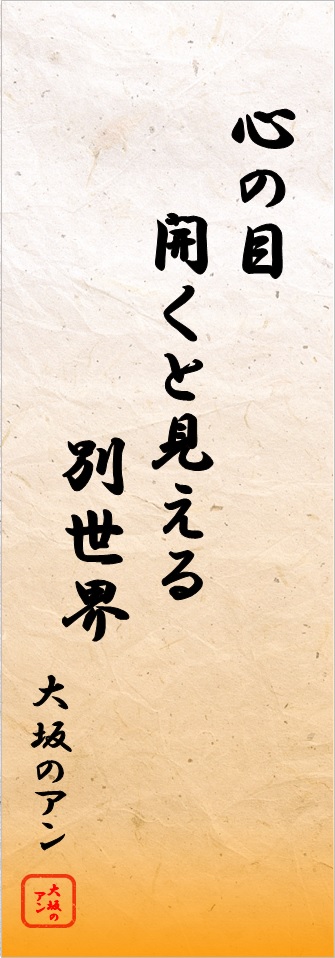 心の目
開くと見える
別世界
大坂のアン
大坂の
アン